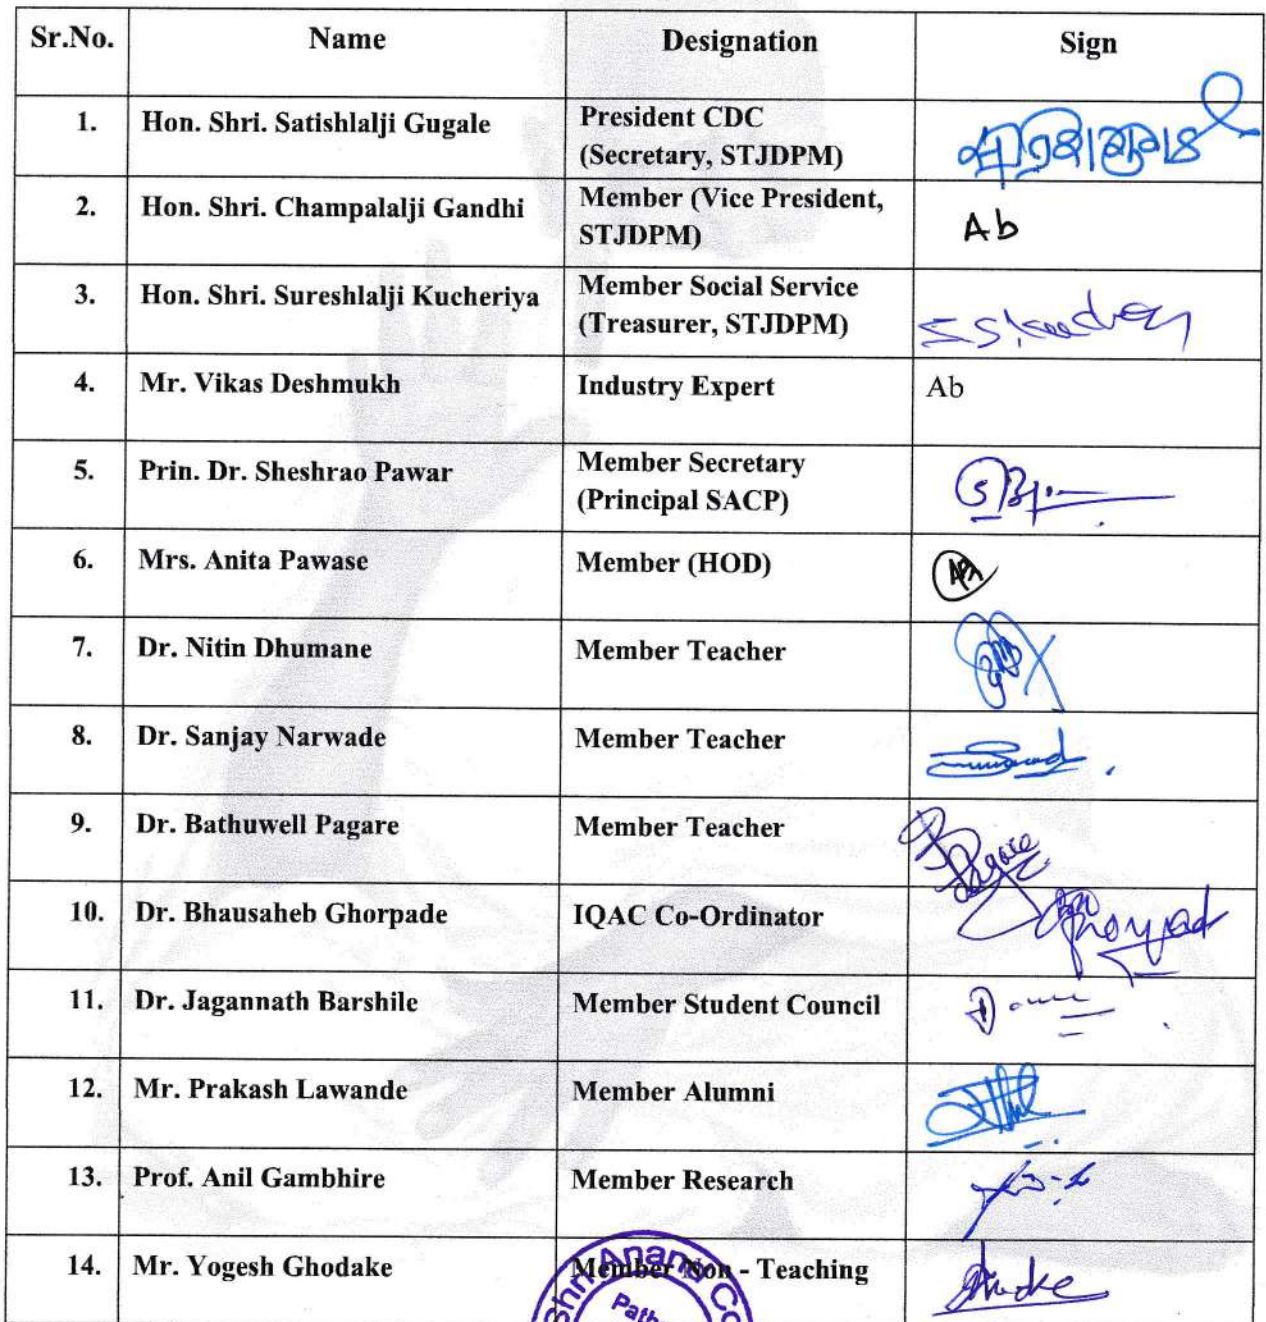 Sr.No. Name Designation Sign
1. Hon. Shri. Satishlalji Gugale President CDC
(Secretary, STJDPM)
2. Hon. Shri. Champalalji Gandhi Member (Vice President,
STJDPM) Ab
3. Hon. Shri. Sureshlalji Kucheriya Member Social Service
(Treasurer, STJDPM)
4. Mr. Vikas Deshmukh Industry Expert Ab
5. Prin. Dr. Sheshrao Pawar Member Secretary
(Principal SACP)
6. Mrs. Anita Pawase Member (HOD)
7. Dr. Nitin Dhumane Member Teacher
8. Dr. Sanjay Narwade Member Teacher
9. Dr. Bathuwell Pagare Member Teacher
10. Dr. Bhausaheb Ghorpade IQAC Co-Ordinator
11. Dr. Jagannath Barshile Member Student Council
12. Mr. Prakash Lawande Member Alumni
13. Prof. Anil Gambhire Member Research
14. Mr. Yogesh Ghodake Member Non - Teaching